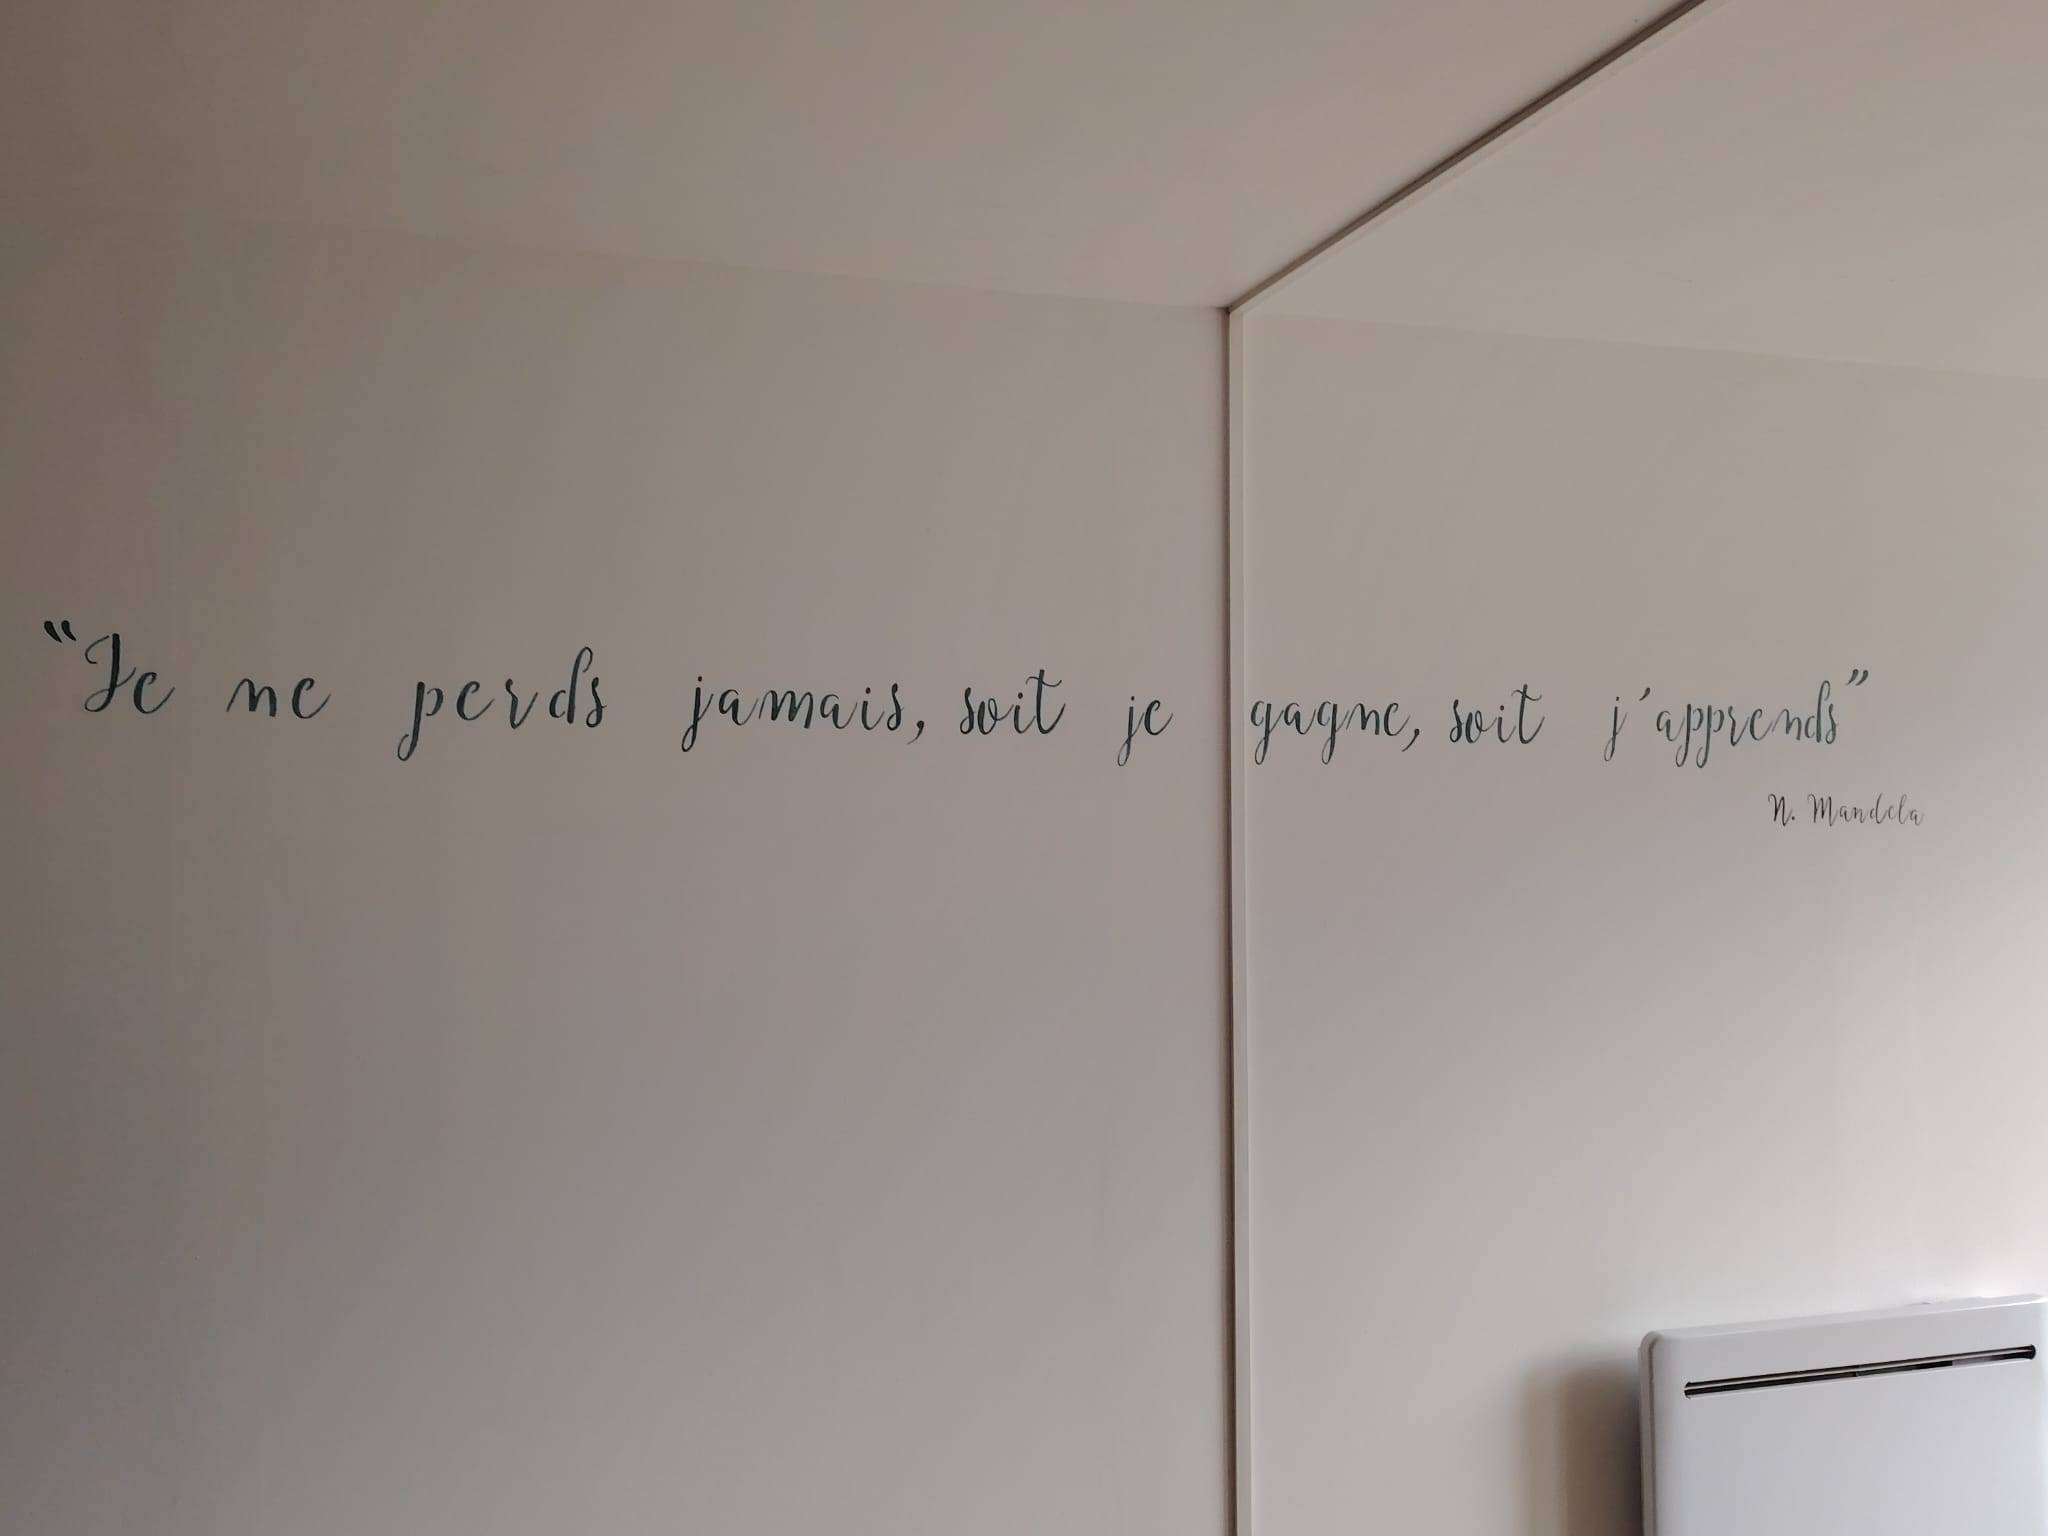 “Je ne perds jamais, soit je gagne, soit j'apprends”
N. Mandela